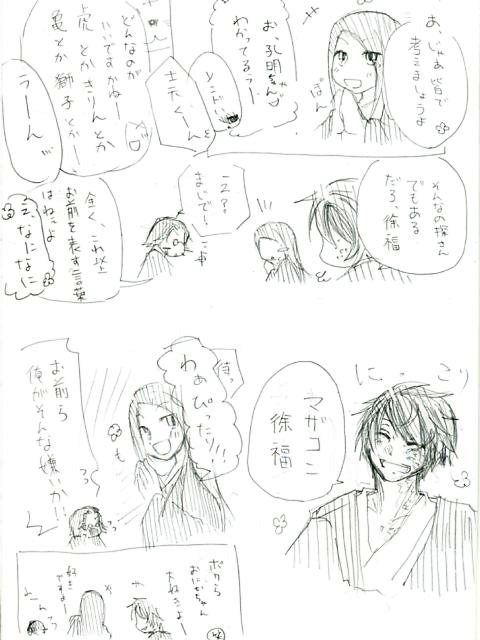 あ、じゃあ皆で
考えましょうよ
ぽん
お、孔明さん
わかってるぅー
士元くーん
どんなのが
いいですかねー
虎とかきりんとか
亀とか獅子とかー
うーん
そんなの探さん
でもある
だろ、徐福
え?
まじで!
全く、これ以上
お前を表す言葉
はねぇよ
え、なになに
にっこり
マザコン
徐福
待っ
わぁぴったり!!
お前ら
俺がそんな嫌いか!!
ボクら
おにいちゃん
大好きよー
好き
ですよー